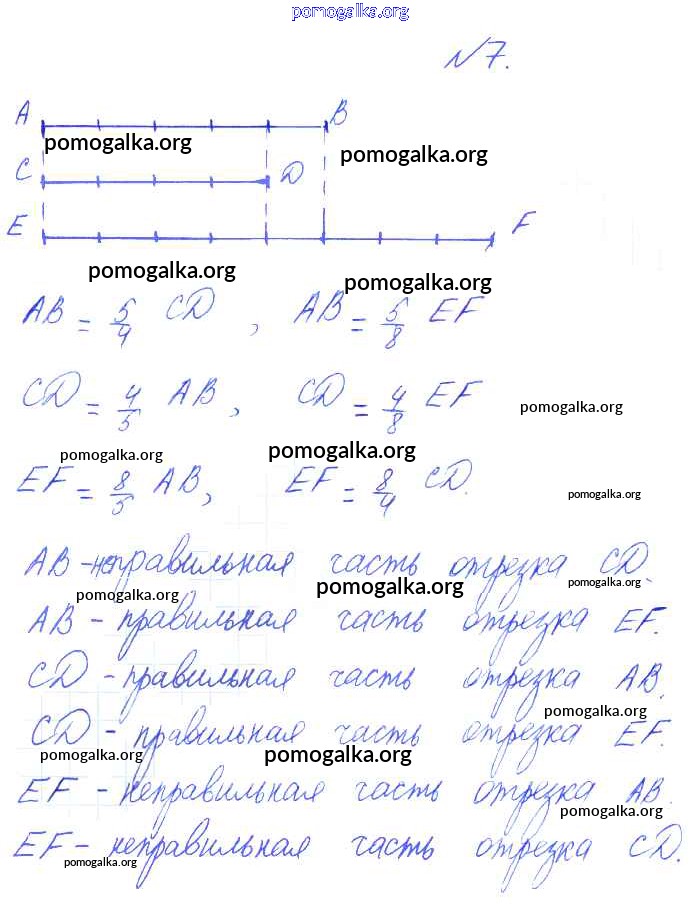 pomogalka.org
№7.
A B
pomogalka.org
pomogalka.org
C D
E F
pomogalka.org
pomogalka.org
AB = 5/4 CD, AB = 5/8 EF
CD = 4/5 AB, CD = 4/8 EF
pomogalka.org
pomogalka.org
pomogalka.org
EF = 8/5 AB, EF = 8/4 CD.
pomogalka.org
AB - неправильная часть отрезка CD.
pomogalka.org
pomogalka.org
pomogalka.org
AB - правильная часть отрезка EF.
CD - правильная часть отрезка AB.
pomogalka.org
CD - правильная часть отрезка EF.
pomogalka.org
pomogalka.org
EF - неправильная часть отрезка AB.
pomogalka.org
EF - неправильная часть отрезка CD.
pomogalka.org